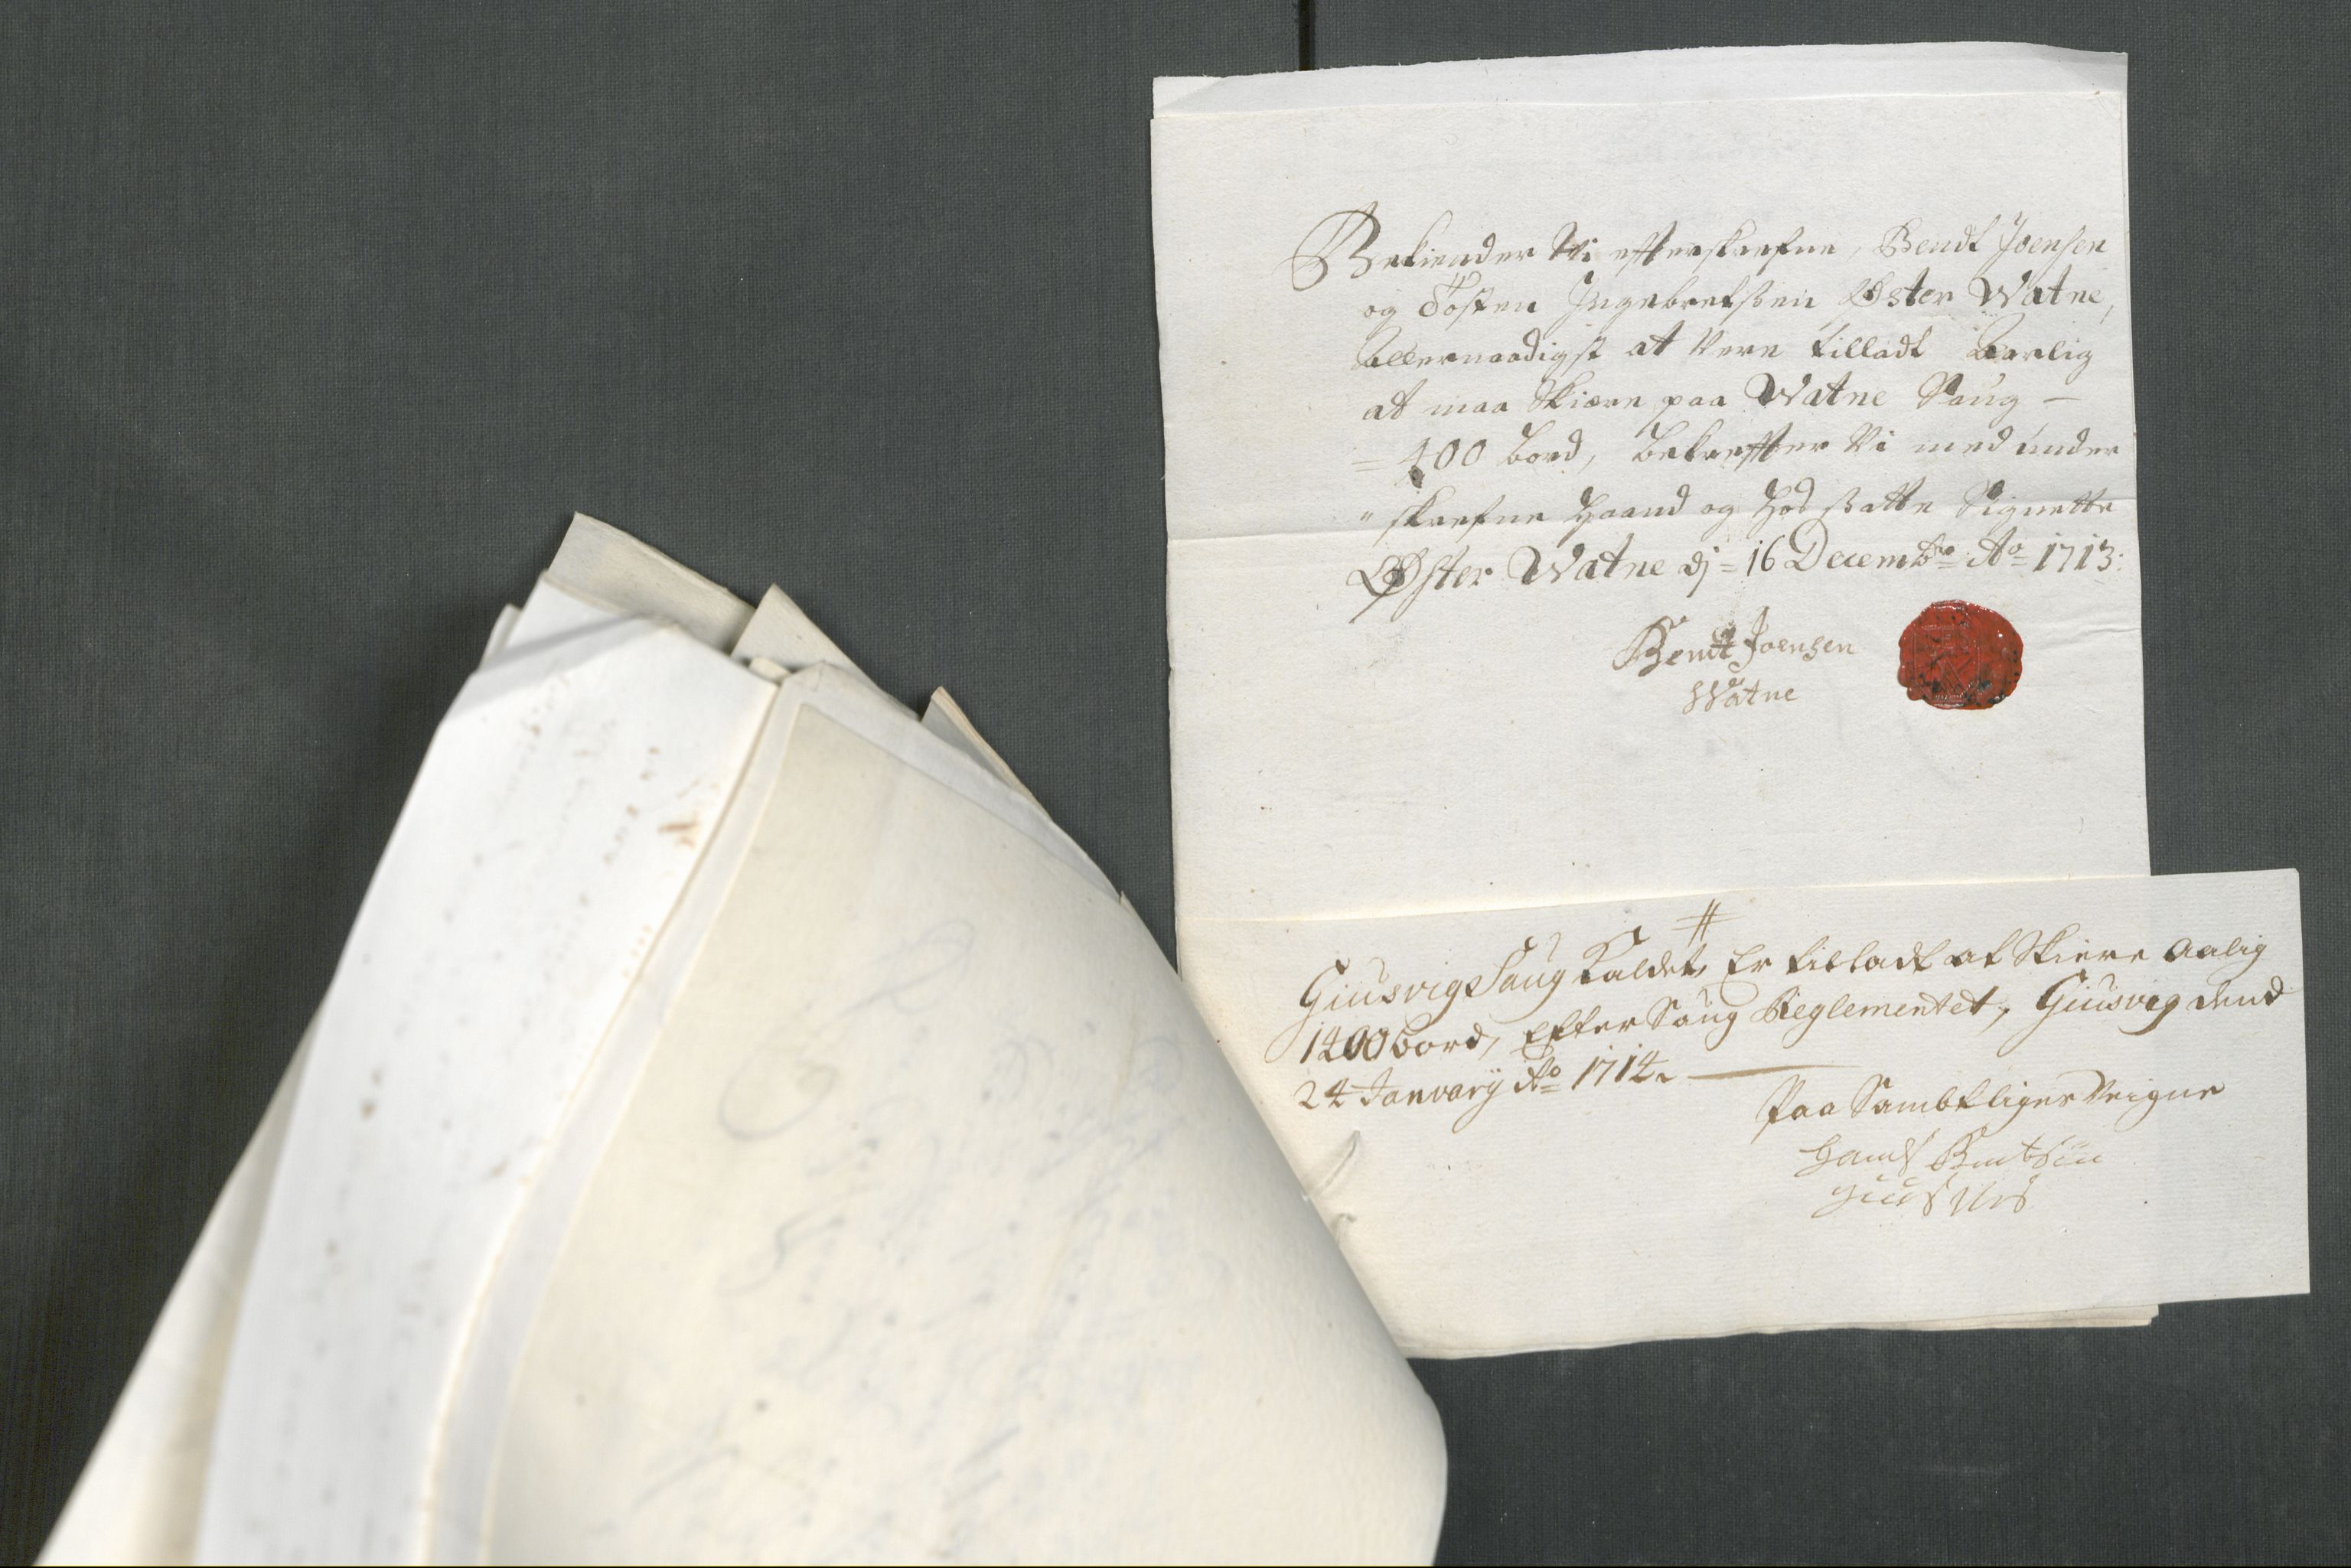 Bekiender Wi efterskrefne, Bendt Joensen
og Tosten Ingebretßen Øster Watne,
allernaadigst at Vere tilladt aarlig
at maa Skiære paa Watne Saug —
= 400 bord, bekrefter Vi med under
" skrefne Haand og hos satte Signette
Øster Watne dj = 16 Decembr: Ao 1713:
Bendt Joensen
Watne
#
Giusvig Saug kaldet, Er tilladt at Skiere Aalig
1400 bord, Efter Saug Reglementet, Giusvig dend
24 January Ao 1714. —
Paa Samtliges Veigne
Hands Bentsen